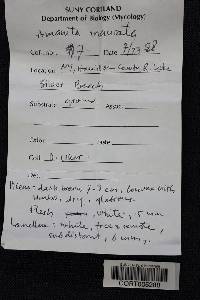 SUNY CORTLAND
Department of Biology (Mycology)
Amanita inaurata
Col. No. #7 Date 7/23/88
Location NY, Hamilton County
Silver Branch
Substrate ground Assoc.
Color Date
Coll
Det.
Pileus - dark brown, 7-8 cm, convex with
umbo, dry, glabrous.
Flesh white, 5 mm
Lamellae - white,
subdistant, 6 mm
CORT008209